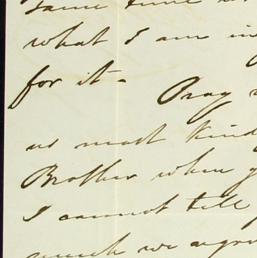 same time
what I am in
for it -
Pray
us most kind
Brother when
I cannot tell
much we agree